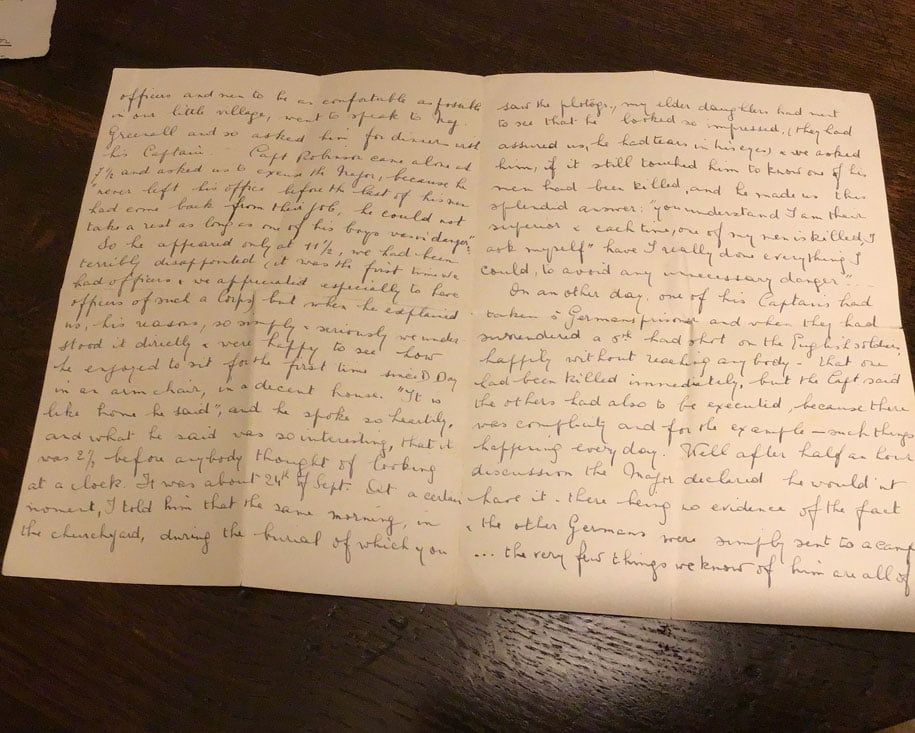 officers and men to be as confortable as possible
in our little village, went to speak to Maj.
Greenall and so asked him for dinner with
his Captain. Capt Robinson came alone at
7½ and asked us to excuse the Major, because he
"never left his office before the last of his men
had come back from their job, he could not
take a rest as long as one of his boys was in danger".
So he appeared only at 11½, we had been
terribly disappointed (it was the first time we
had officers & we appreciated especially to have
officers of such a Corps) but when he explained
us, his reasons, so simply & seriously we under-
stood it directly & were happy to see how
he enjoyed to sit for the first time since D Day
in an arm chair, in a decent house. "It is
like home he said", and he spoke so heartily,
and what he said was so interesting, that it
was 2½ before anybody thought of looking
at a clock. It was about 24th of Sept. At a certain
moment, I told him that the same morning, in
the churchyard, during the burial of which you
saw the photogr., my elder daughters had met
to see that he looked so impressed, (they had
assured us, he had tears in his eyes) & we asked
him, if it still touched him to know one of his
men had been killed, and he made us this
splendid answer: "you understand I am their
superior & each time, one of my men is killed, I
ask myself" have I really done everything I
could, to avoid any unnecessary danger"....
In an other day, one of his Captains had
taken 5 Germans prisoner and when they had
surrendered a 6th had shot on the English soldiers,
happily without reaching any body. That one
had been killed immediately, but the Capt said
the others had also to be executed, because there
was complicity and for the example — such things
happening every day. Well after half an hour
discussion the Major declared he would'nt
have it. there being no evidence of the fact
& the other Germans were simply sent to a camp
... the very few things we know of him are all of